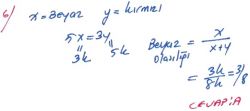 6) x = Beyaz y = kırmızı
5x = 3y
" "
3k 5k
Beyaz Olasılığı = x / x+y
= 3k / 8k = 3/8
CEVAP: A